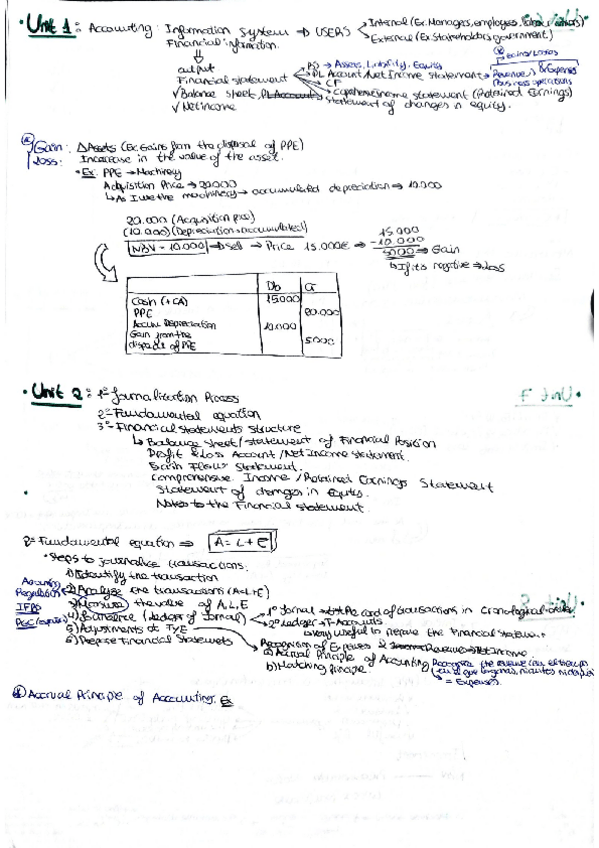 • Unit 1: Accounting: Information System → USERS
Internal (Ex. Managers, employees,
External (Ex. Stakeholders government)
Financial information.
output
Financial statement
BS → Assets, Liability, Equity
PL Account/Net Income statement → Revenues & Expenses
Business operations
CF
Income statement (Retained Earnings)
Statement of changes in equity.
✓ Balance sheet, PL Account
✓ Net income
Gains/Losses
Gain: Δ Assets (Ex. Gains from the disposal of PPE)
Loss: Increase in the value of the asset.
• Ex: PPE → Machinery
Adquisition Price → 20.000
↳ As I use the machinery → accumulated depreciation → 10.000
20.000 (Acquisition price)
(10.000) (Depreciation accumulated)
NBV = 10.000 → Sell → Price 15.000€ →
15.000
- 10.000
5000 → Gain
↳ If its negative → loss
Db Cr
Cash (+CA) 15000
PPE 20.000
Accum Depreciation 10.000
Gain from the
disposale of PPE 5000
• Unit 2: 1º Journalitation Process
2º Fundamental equation
3º Financial statements structure
↳ Balance sheet/statement of Financial Position
Profit & Loss Account/Net Income statement.
Cash Flows Statement.
Comprehensive Income/Retained Earnings Statement
Statement of changes in Equity.
Notes to the Financial statement.
2º Fundamental equation ⇒ A = L + E
• Steps to journalice transactions:
1) Identify the transaction
2) Analyze the transactions (A=L+E)
3) Measure the value of A, L, E
4) (Ledger & Journal)
1º Jornal → of transactions in cronological order
2º Ledger → T-Accounts
↳ very useful to prepare the Financial statement
5) Adjustments at TYE
6) Prepare Financial Statements
Accounting
Regulation
IFRS
PGC
Recognision of Expeses & Revenue → Net Income
a) Accrual Principle of Accounting
b) Matching Principle.
Recognise the revenue
= Expenses.
Accrual Principle of Accounting: Ex